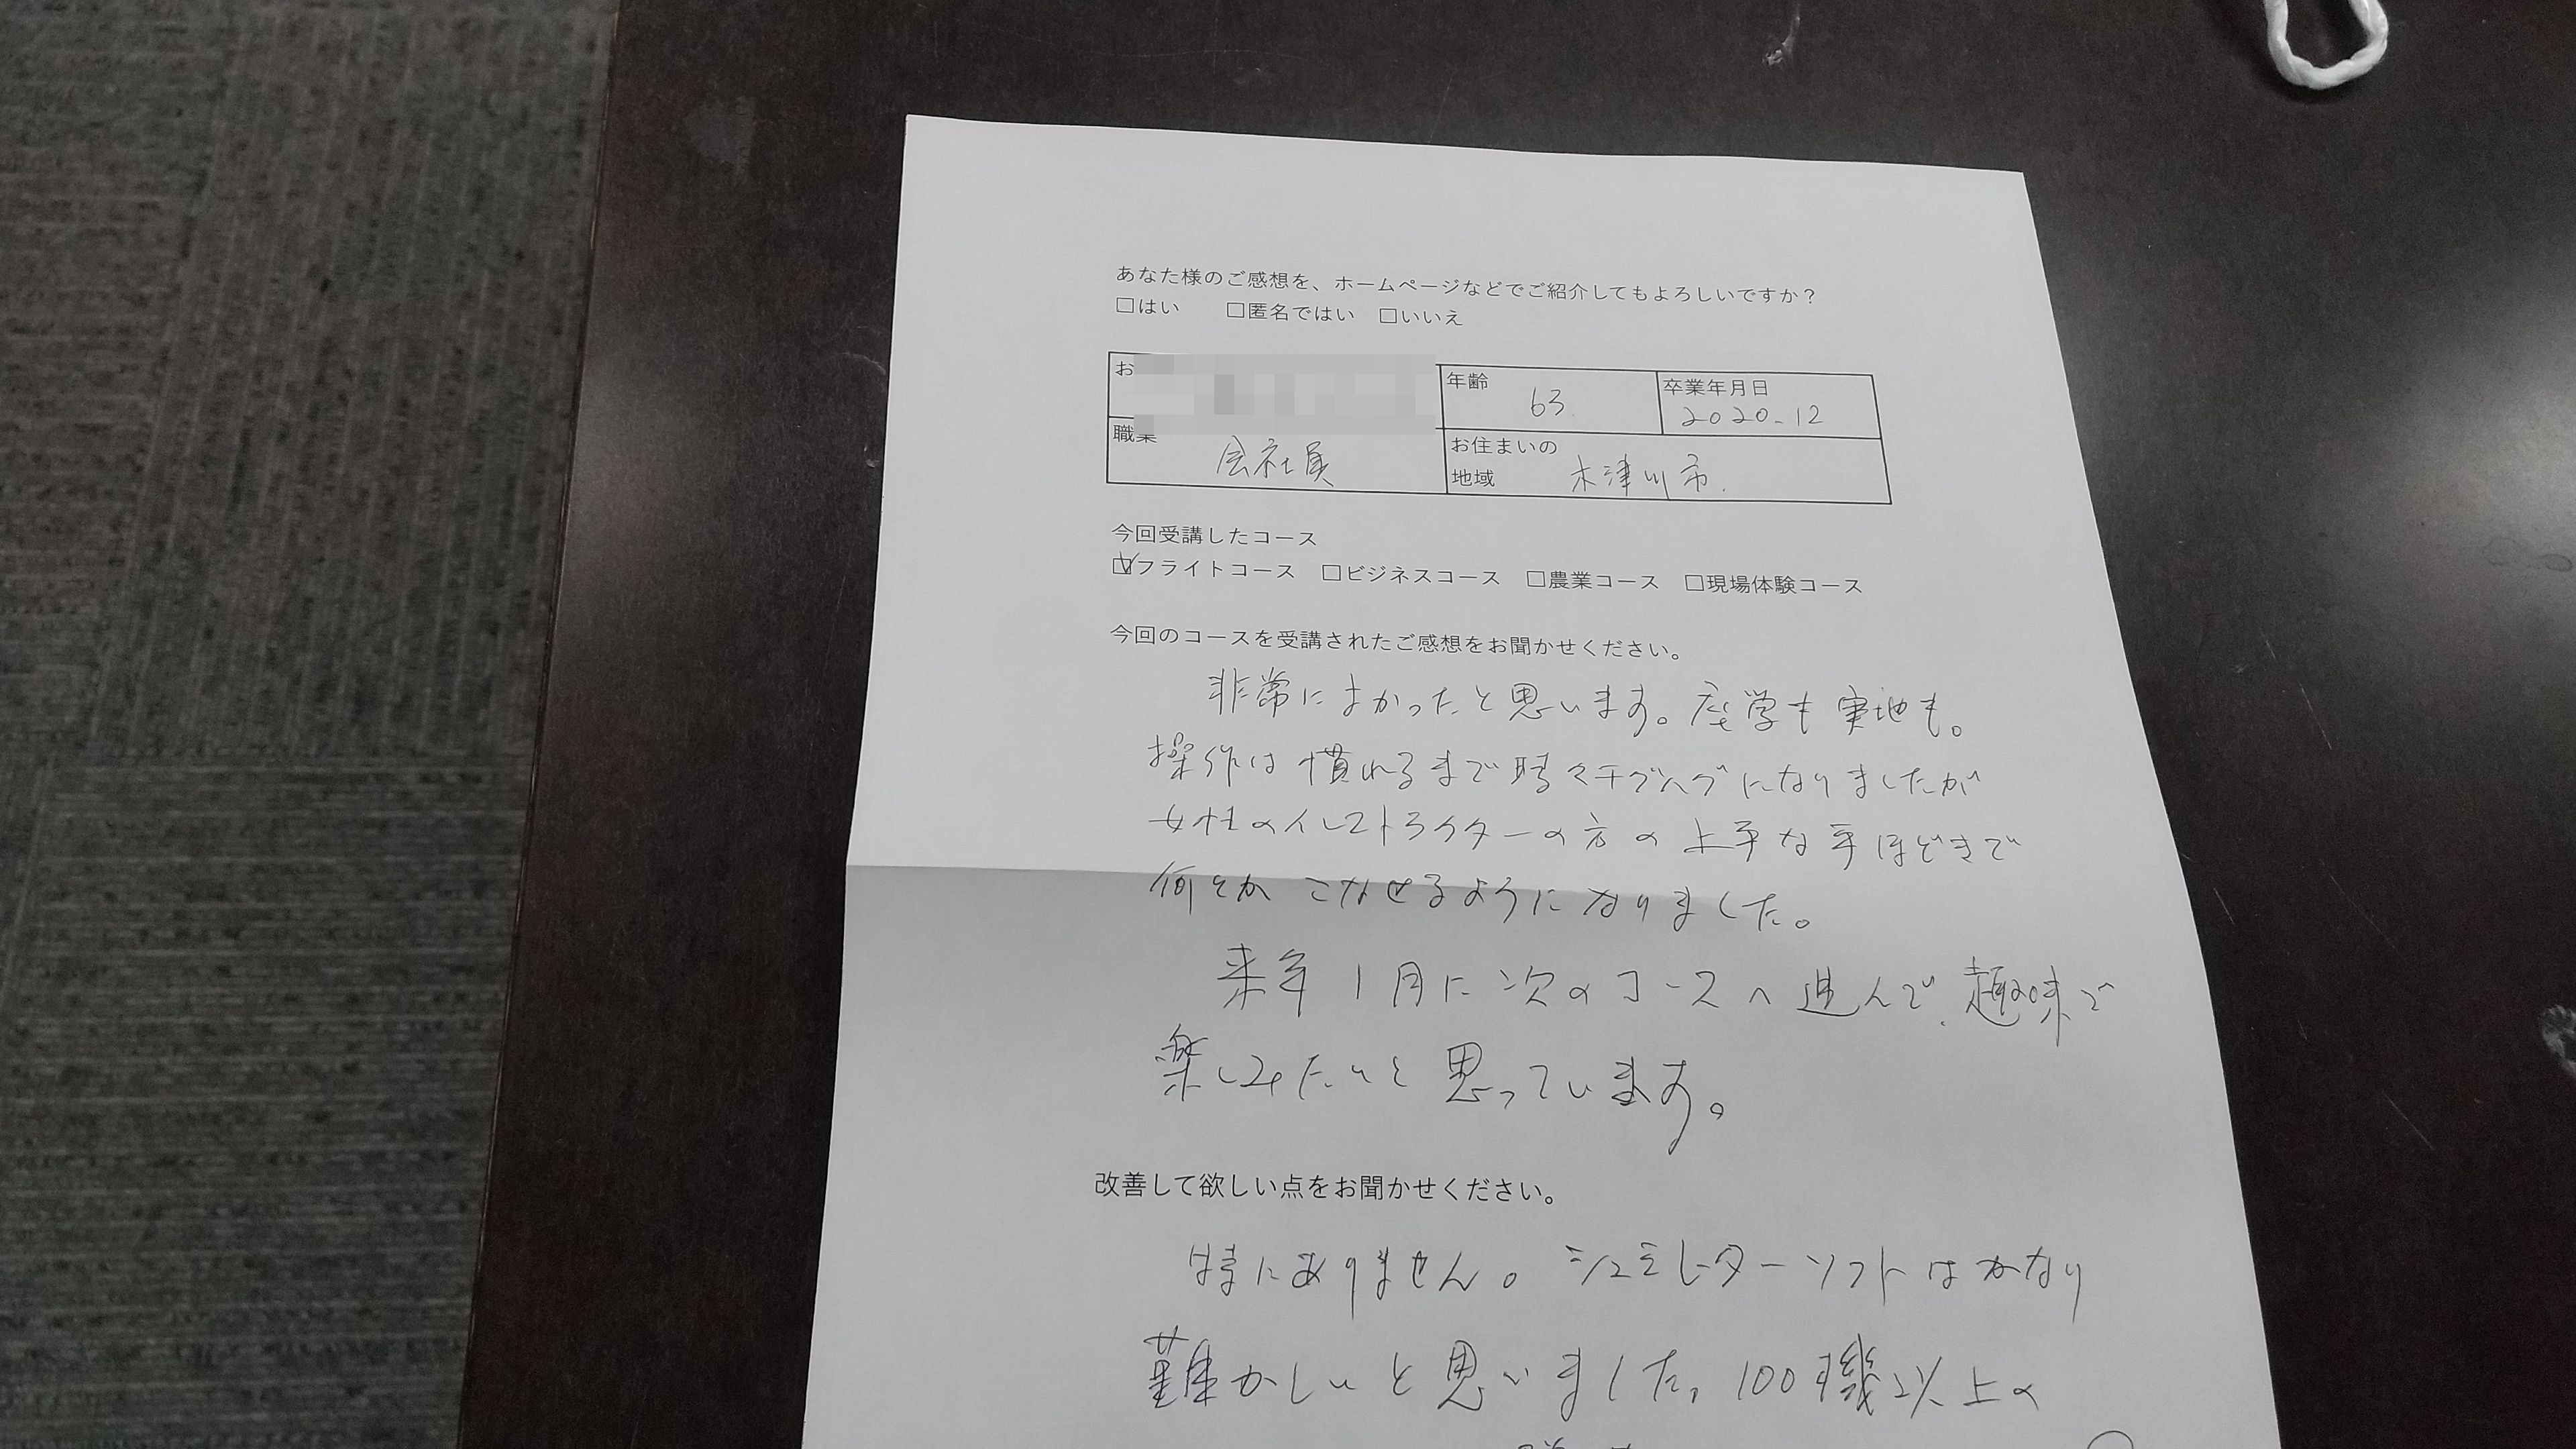 あなた様のご感想を、ホームページなどでご紹介してもよろしいですか？
□はい □匿名ではい □いいえ
お
年齢 63
卒業年月日 2020-12
職業 会社員
お住まいの地域 木津川市
今回受講したコース
☑フライトコース □ビジネスコース □農業コース □現場体験コース
今回のコースを受講されたご感想をお聞かせください。
非常によかったと思います。座学も実地も。
操作は慣れるまで時々チグハグになりましたが
女性のインストラクターの方の上手な手ほどきで
何とかこなせるようになりました。
来年1月に次のコースへ進んで、趣味で
楽しみたいと思っています。
改善して欲しい点をお聞かせください。
特にありません。シュミレーターソフトはかなり
難かしいと思いました。100機以上の